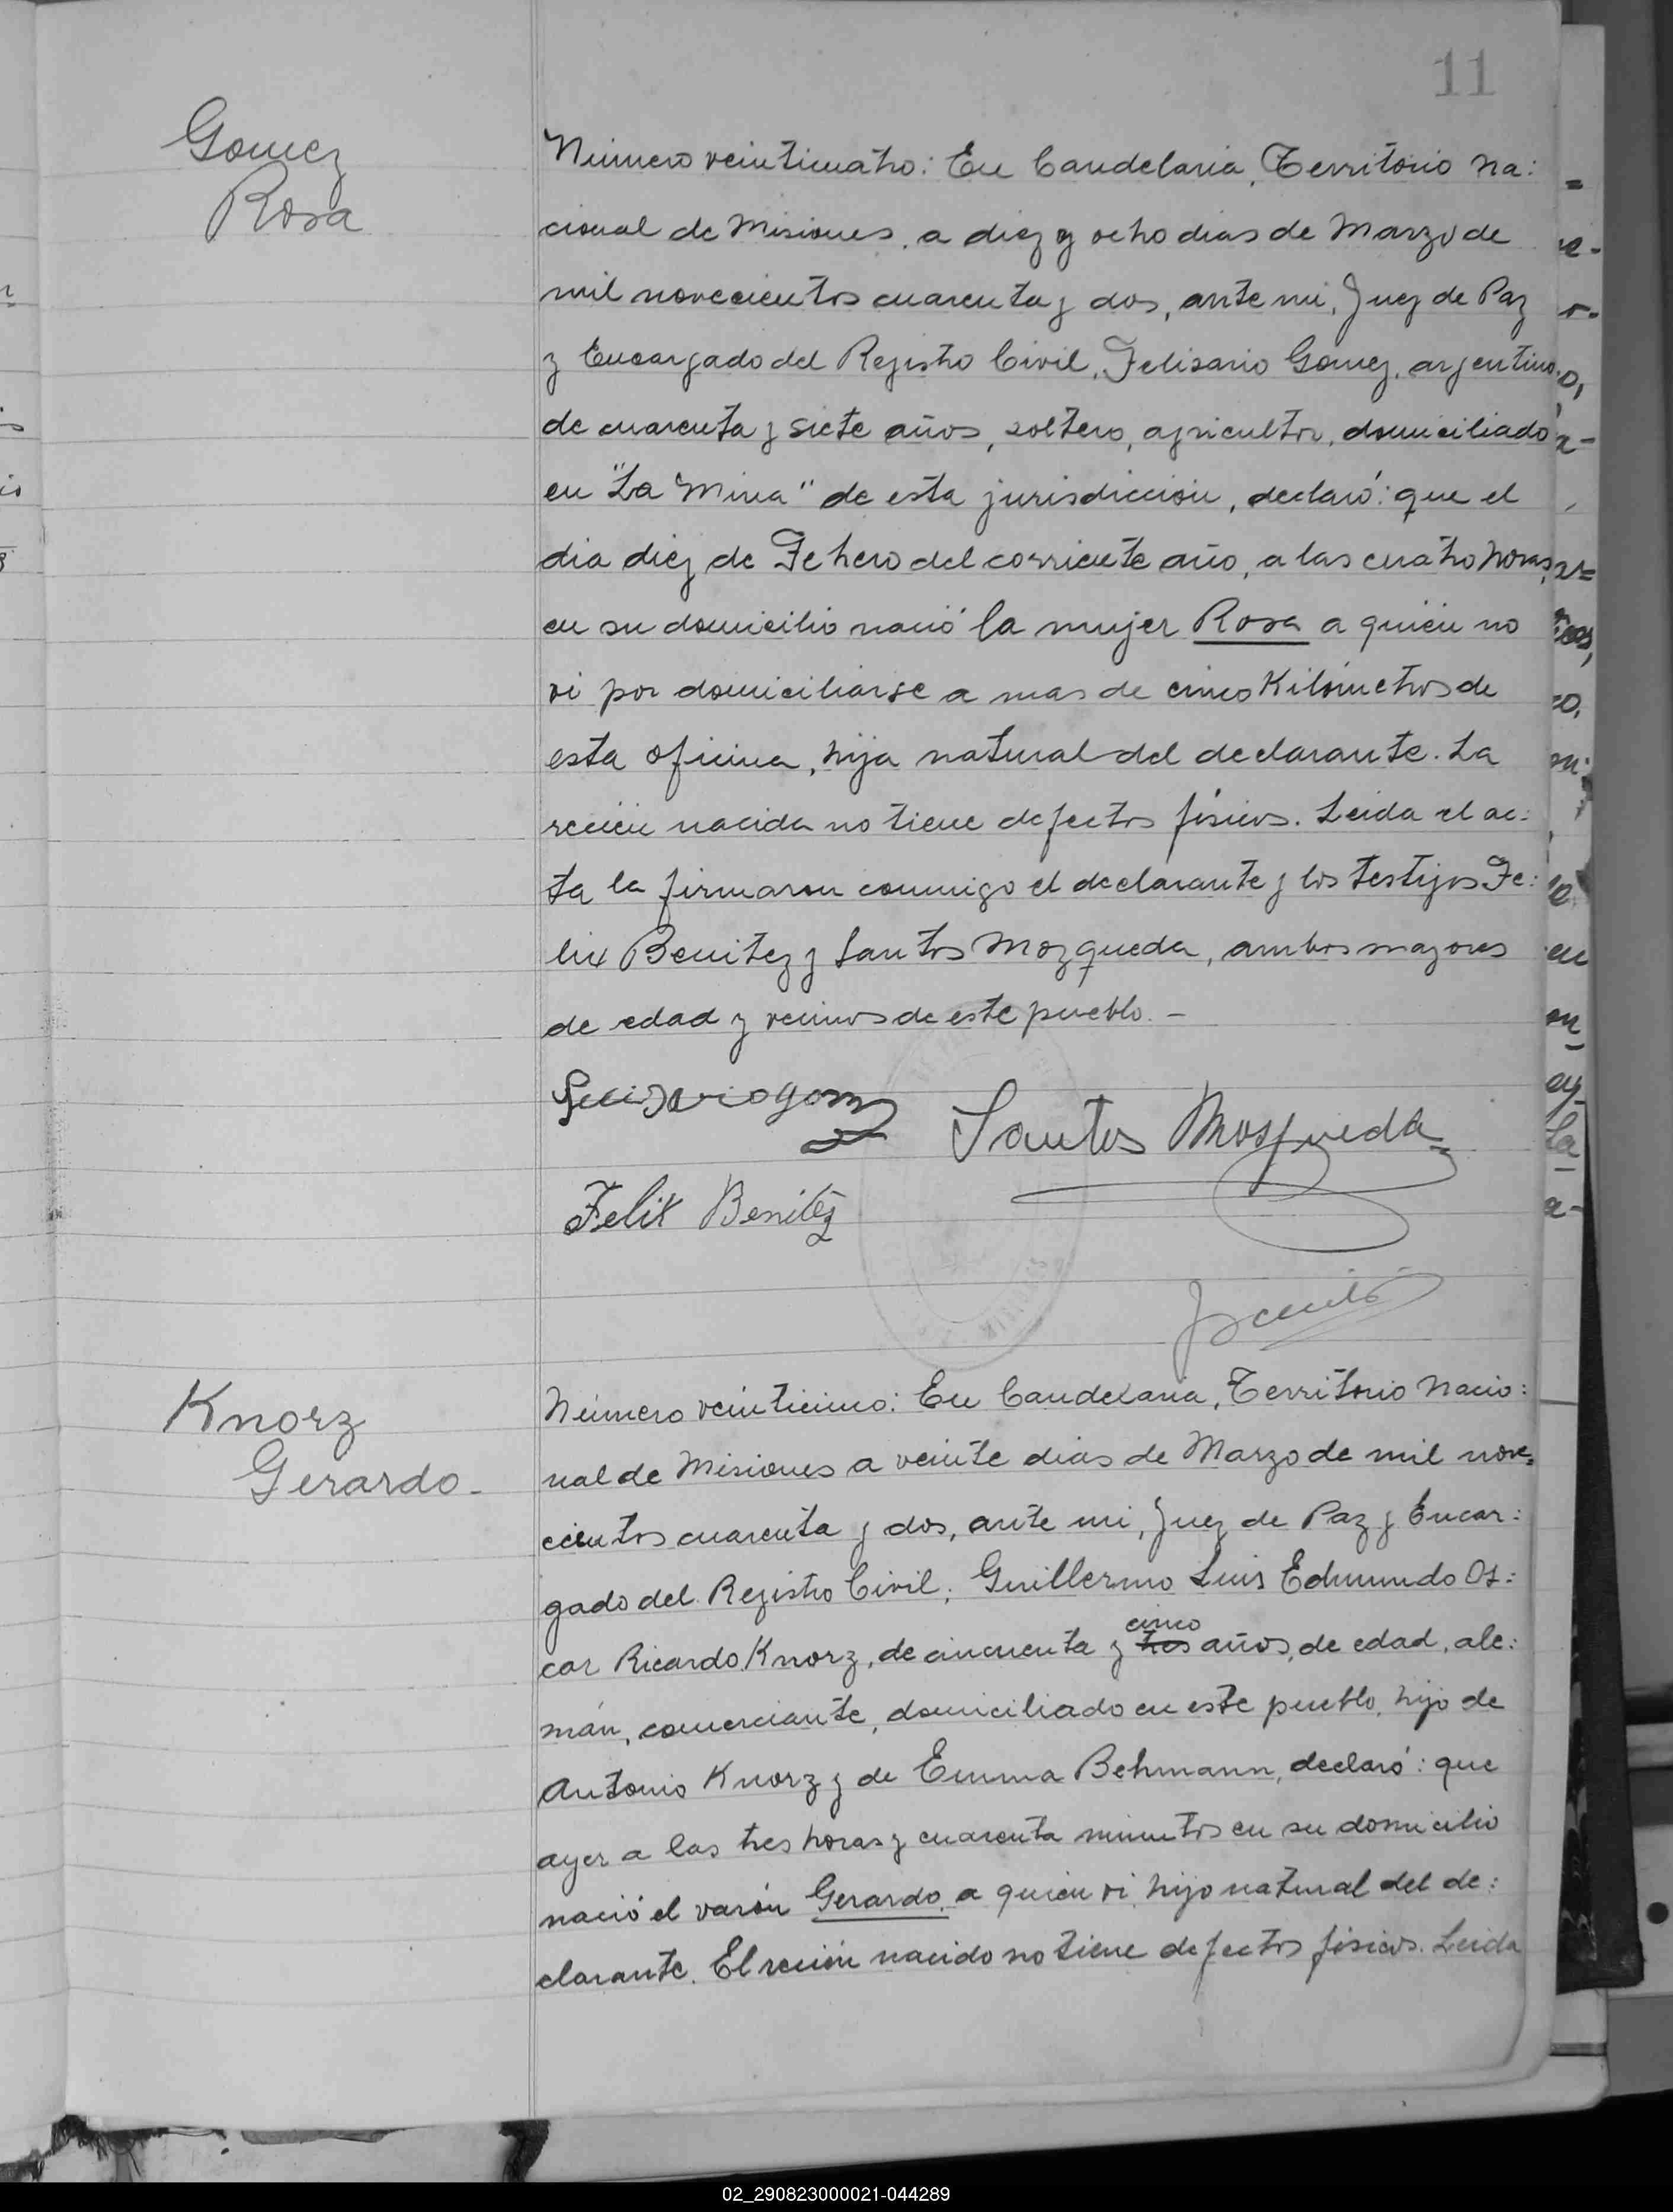 11
Gomez
Rosa
Número veinticuatro: En Candelaria, Territorio Na:
cional de Misiones, a diez y ocho dias de Marzo de
mil novecientos cuarenta y dos, ante mi, Juez de Paz
y Encargado del Registro Civil, Felisario Gomez, argentino
de cuarenta y siete años, soltero, agricultor, domiciliado
en "La Mina" de esta jurisdicción, declaró: que el
dia diez de Febrero del corriente año, a las cuatro horas,
en su domicilio nació la mujer Rosa a quién no
vi por domiciliarse a mas de cinco Kilómetros de
esta oficina, hija natural del declarante. La
recién nacida no tiene defectos físicos. Leida el ac:
ta la firmaron conmigo el declarante y los testigos Fe:
lix Benitez y Santos Mozqueda, ambos mayores
de edad y vecinos de este pueblo. -
Santos Mosqueda
Felix Benitez
Knorz
Gerardo -
Número veinticinco: En Candelaria, Territorio Nacio:
nal de Misiones a veinte dias de Marzo de mil nove:
cientos cuarenta y dos, ante mi, Juez de Paz y Encar:
gado del Registro Civil, Guillermo Luis Edmundo Os:
cinco
car Ricardo Knorz, de cincuenta y tres años, de edad, ale:
mán, comerciante, domiciliado en este pueblo, hijo de
Antonio Knorz y de Emma Behmann, declaró: que
ayer a las tres horas y cuarenta minutos en su domicilio
nació el varón Gerardo, a quien vi, hijo natural del de:
clarante. El recién nacido no tiene defectos físicos. Leida
02_290823000021-044289